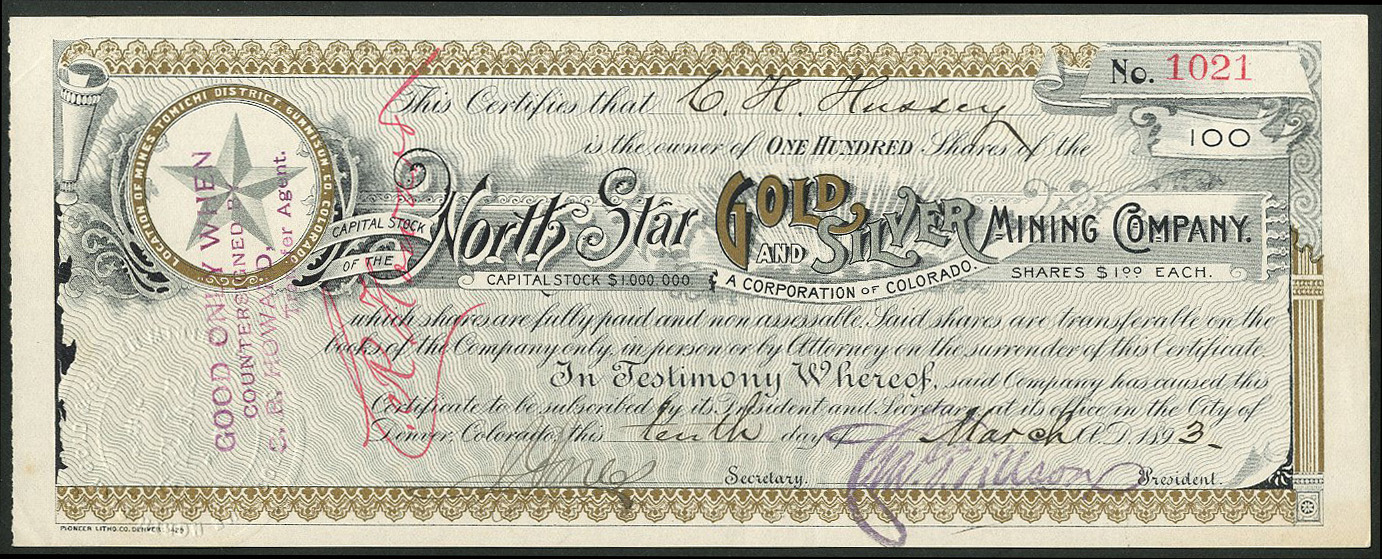 No. 1021
This Certifies that C. H. Hussey
100
is the owner of ONE HUNDRED Shares of the
LOCATION OF MINES TOMICHI DISTRICT GUNNISON CO. COLORADO
CAPITAL STOCK
OF THE
North Star GOLD AND SILVER MINING COMPANY.
CAPITAL STOCK $1.000.000
A CORPORATION OF COLORADO.
SHARES $1.00 EACH.
which shares are fully paid and non assessable. Said shares are transferable on the
books of the Company only, in person or by Attorney on the surrender of this Certificate.
In Testimony Whereof, said Company has caused this
Certificate to be subscribed by its President and Secretary at its office in the City of
Denver, Colorado, this tenth day of March A.D. 1893
Secretary.
President.
GOOD ONLY WHEN
COUNTERSIGNED BY
HOWARD,
Agent.
PIONEER LITHO. CO. DENVER